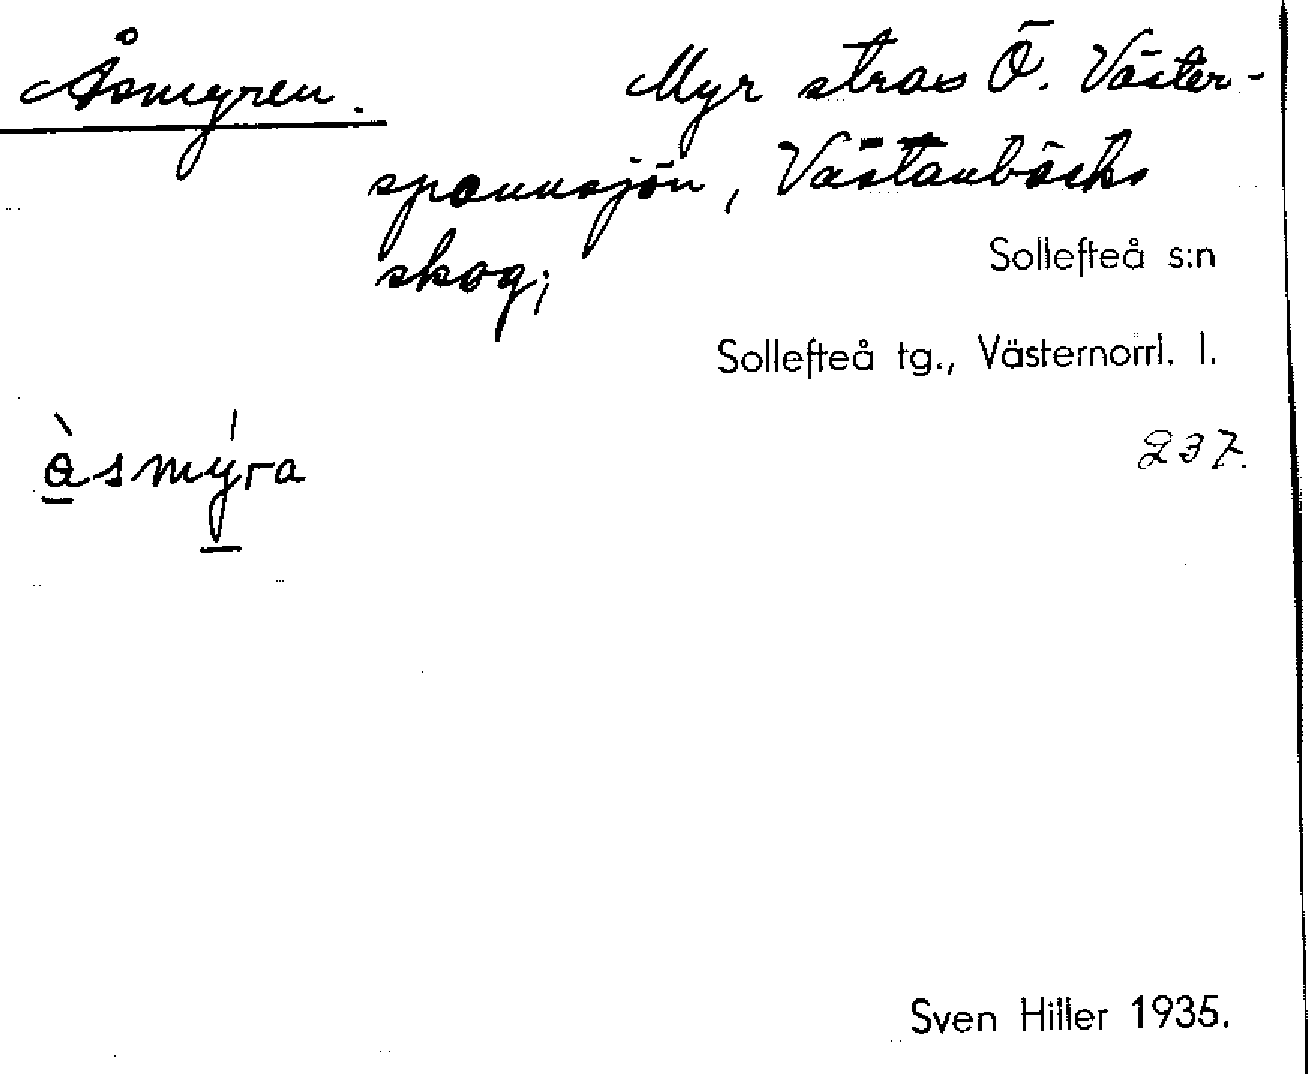 Åsmyren. Myr strax Ö. Väster-
spannsjön, Västanbäcks
skog;
Sollefteå s:n
Sollefteå tg., Västernorrl. l.
àsmýra
237.
Sven Hiller 1935.